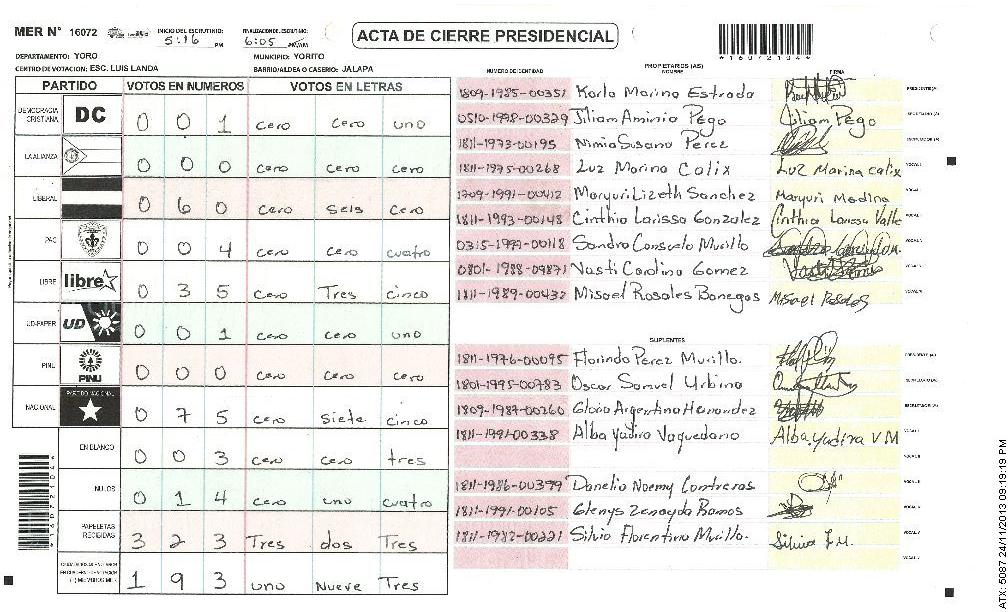 MER N° 16072 INICIO DEL ESCRUTINIO: 5:16 PM FINALIZACION DE ESCRUTINIO: 6:05 PM/AM
ACTA DE CIERRE PRESIDENCIAL
*16072104*
DEPARTAMENTO: YORO MUNICIPIO: YORITO
CENTRO DE VOTACION: ESC. LUIS LANDA BARRIO/ALDEA O CASERIO: JALAPA
PARTIDO VOTOS EN NUMEROS VOTOS EN LETRAS
DEMOCRACIA CRISTIANA DC 0 0 1 cero cero uno
LA ALIANZA 0 0 0 cero cero cero
LIBERAL 0 6 0 cero seis cero
PAC 0 0 4 cero cero cuatro
LIBRE libre 0 3 5 cero Tres cinco
UD-FAPER UD 0 0 1 cero cero uno
PINU PINU 0 0 0 cero cero cero
NACIONAL PARTIDO NACIONAL 0 7 5 cero siete cinco
EN BLANCO 0 0 3 cero cero tres
NULOS 0 1 4 cero uno cuatro
PAPELETAS RECIBIDAS 3 2 3 Tres dos Tres
1 9 3 uno Nueve Tres
PROPIETARIOS (AS)
NUMERO DE IDENTIDAD NOMBRE FIRMA
1809-1985-00351 Karla Marina Estrada
0510-1998-00329 Jiliam Aminia Pego Jiliam Pego
1811-1973-00195 Nimia Susana Perez
1811-1975-00268 Luz Marina Calix Luz Marina calix
1709-1991-00412 Maryuri Lizeth Sanchez Maryuri Medina
1811-1993-00148 Cinthia Larissa Gonzalez Cinthia Larissa Valle
0315-1999-00118 Sandra Consuelo Murillo
0801-1988-09871 Vasti Carolina Gomez
1811-1989-00432 Misael Rosales Banegas Misael Rosales
SUPLENTES
1811-1976-00095 Florinda Perez Murillo.
1801-1995-00783 Oscar Samuel Urbina
1809-1987-00260 Gloria Argentina Hernandez
1811-1991-00338 Alba Yadira Vaquedano Alba Yadira V M
1811-1986-00399 Danelia Noemy Contreras
1811-1991-00105 Glenys Zenayda Ramos
1811-1982-00221 Silvia Florentina Murillo. Silvia F.M.
*16072104*
ATX: 5087 24/11/2013 09:19:19 PM